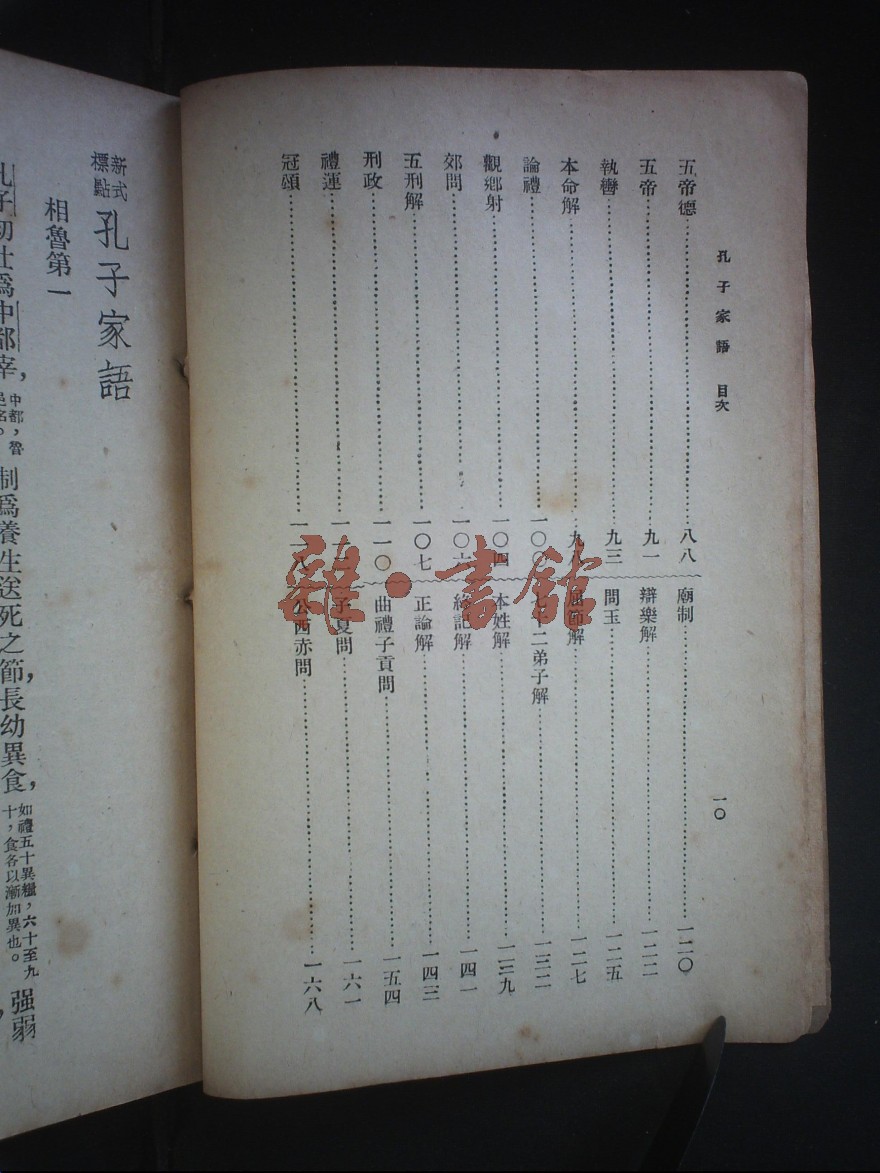 孔子家語 目次
一〇
五帝德……八八
五帝……九一
執轡……九三
本命解……九
論禮……一〇〇
觀鄉射……一〇四
郊問……一〇六
五刑解……一〇七
刑政……一一〇
禮運……一一
冠頌……一一八
廟制……一二〇
辯樂解……一二二
問玉……一二五
屈節解……一二七
七十二弟子解……一三二
本姓解……一三九
終記解……一四一
正論解……一四三
曲禮子貢問……一五四
子夏問……一六一
公西赤問……一六八
雜·書館
新式標點 孔子家語
相魯第一
孔子初仕爲中都宰，中都，魯邑名。制爲養生送死之節，長幼異食，如禮五十異糧，六十至九十，食各以漸加異也。強弱